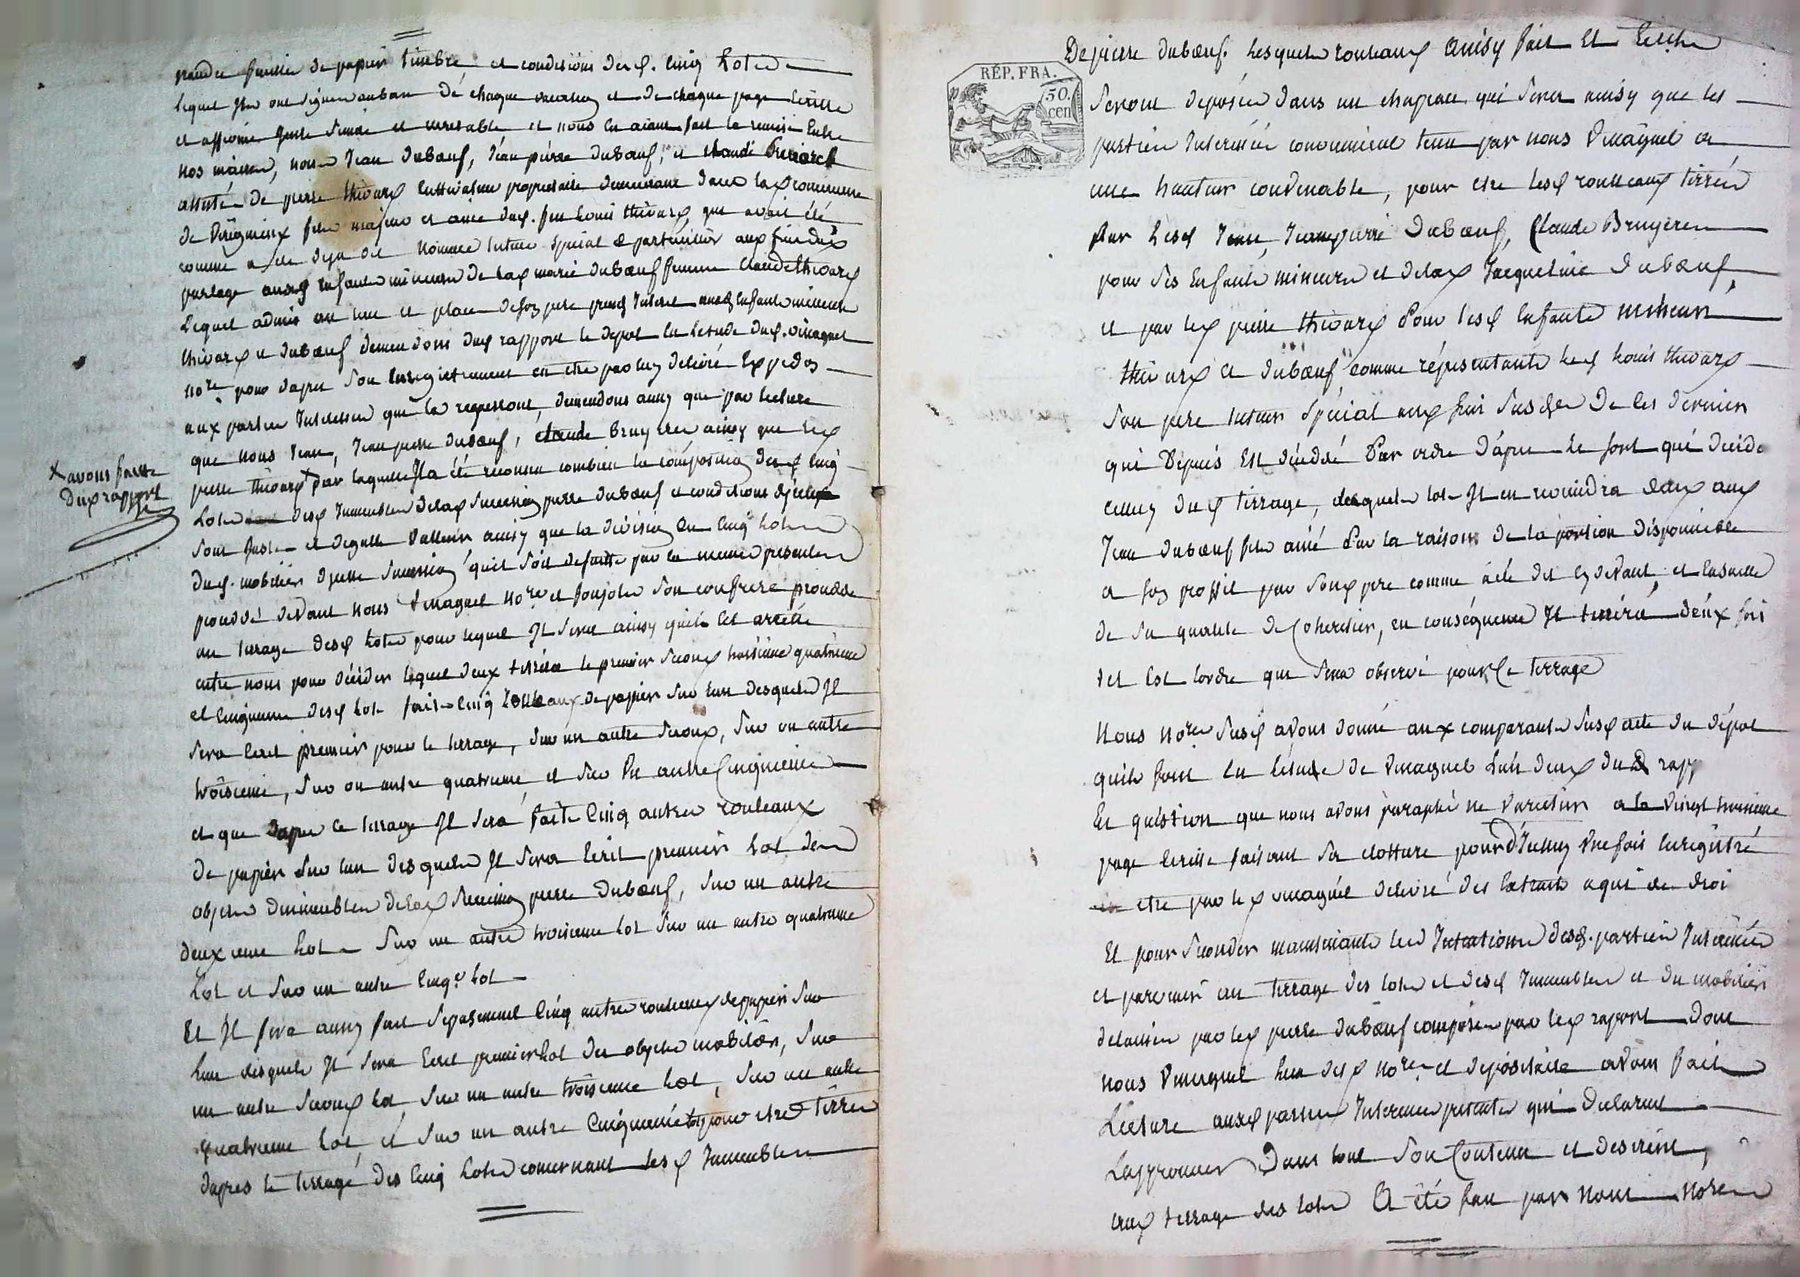 grande feuille de papier timbré et conditions desd. cinq Lots
lequel ils ont signé au bas de chaque vacation et de chaque page Ecritte
et affirmé juste sincere et veritable et nous en aiant fait la remise Entre
nos mains, nous Jean Dubœuf, Jean pierre Dubœuf, et claude
assisté de pierre thivard cultivateur proprietaire demeurant dans la commune
de Périgneux fils majeur et ainé dud. feu Louis thivard, que avait été
comme a été deja dit nommé tuteur spécial & particulier aux fins dud.
partage auxd Enfants mineurs de lad marie duboeuf femme Claude thivard
Lequel admis au lieu et place de son pere prend Interet auxd Enfants mineurs
thivard et dubœuf demandons dud rapport le depot en Letude dud. vinagnet
nore pour dapres son Enregistrement en etre par luy delivré Expedon
aux parties Interessées que le regarront, demandons aussy que par lecture
que nous Jean, Jean pierre dubœuf, claude Bruyere ainsy que led
pierre thivard par laquelle Il a été reconnu combien la composition desd cinq
x avons faitte
dud rapport
Lots desd Immeubles de lad succession pierre dubœuf et conditions
sont justes et degalle valleur ainsy que la division en cinq Lots
dud. mobilier dependante succession quil soit de suitte par la meme presente
procedé devant nous vinagnet nore et son confrere procedé
au tirage desd Lots pour lequel Il sera ainsy quil est arretté
entre nous pour décider lequel deux tirera le premier second troisieme quatrieme
et cinquieme desd Lots fait cinq rouleaux de papier sur lun desquels Il
sera Ecrit premier pour le tirrage, sur un autre second, sur un autre
troisieme, sur un autre quatrieme et sur un autre Cinquieme
et que dapres ce tirrage Il sera fait Cinq autres rouleaux
de papier sur lun desquels Il sera Ecrit premier Lot des
objets dimmeubles de lad succession pierre Dubœuf, sur un autre
deuxieme Lot sur un autre troisieme Lot sur un autre quatrieme
Lot et sur un autre cinqe Lot
Et Il sera aussy fait separement Cinq autres rouleaux de papier sur
Lun desquels Il sera Ecrit premier Lot des objets mobiliers, sur
un autre second Lot, sur un autre troisieme Lot, sur un autre
quatrieme Lot, et sur un autre Cinquieme Lot pour etre tirrés
dapres le tirrage des cinq Lots concernant lesd Immeubles
De pierre Duboeuf. Lesquels rouleaux ainsy fait Et
RÉP. FRA.
50.
cen
seront deposés dans un chapeau qui sera ainsy que les
parties Interessées tenu par nous Vinagnet a
une hauteur convenable, pour etre lesd rouleaux tirrés
par Lesd Jean, Jeanpierre Dubœuf, Claude Bruyere
pour ses Enfants mineurs et de lad Jacqueline Dubœuf
et par led pierre thivard pour lesd Enfants mineurs
thivard et dubœuf comme réprésentants led Louis thivard
son pere tuteur spécial aux fins susdes de ces derniers
qui depuis Est décédé Par ordre d'apres le sort qui decide
celluy dud tirrage, desquels lots Il en reviendra deux aux
Jean dubœuf fils ainé par la raison de la portion disponible
a son proffit par sond pere comme a été dit cy devant, et Ensuitte
de sa qualité de Coheritier, en conséquence Il tirrera deux fois
tel Est lordre que sera observé pour Ce tirrage
Nous nore susd avons donné aux comparants susd acte du dépot
quils font En letude de vinagnet Lun deux dud rapp
En question que nous avons paraphé ne varietur a la vingt troisieme
page Ecritte faisant sa clotture pour d'Icelluy une fois Enregistré
etre par led vinagnet delivré des Extraits a qui de droi
Et pour seconder maintenant les Intentions desd. parties Interessées
et parvenir au tirrage des lots et desd Immeubles et du mobilier
delaissés par led pierre dubœuf composés par led raport dont
nous Vinagnet Lun desd nores et dépositaire avons fait
Lecture auxd parties Interessées presentes qui declarent
Lapprouver Dans tout son Contenu et desirent
aud tirrage des lots A été fait par nous nores